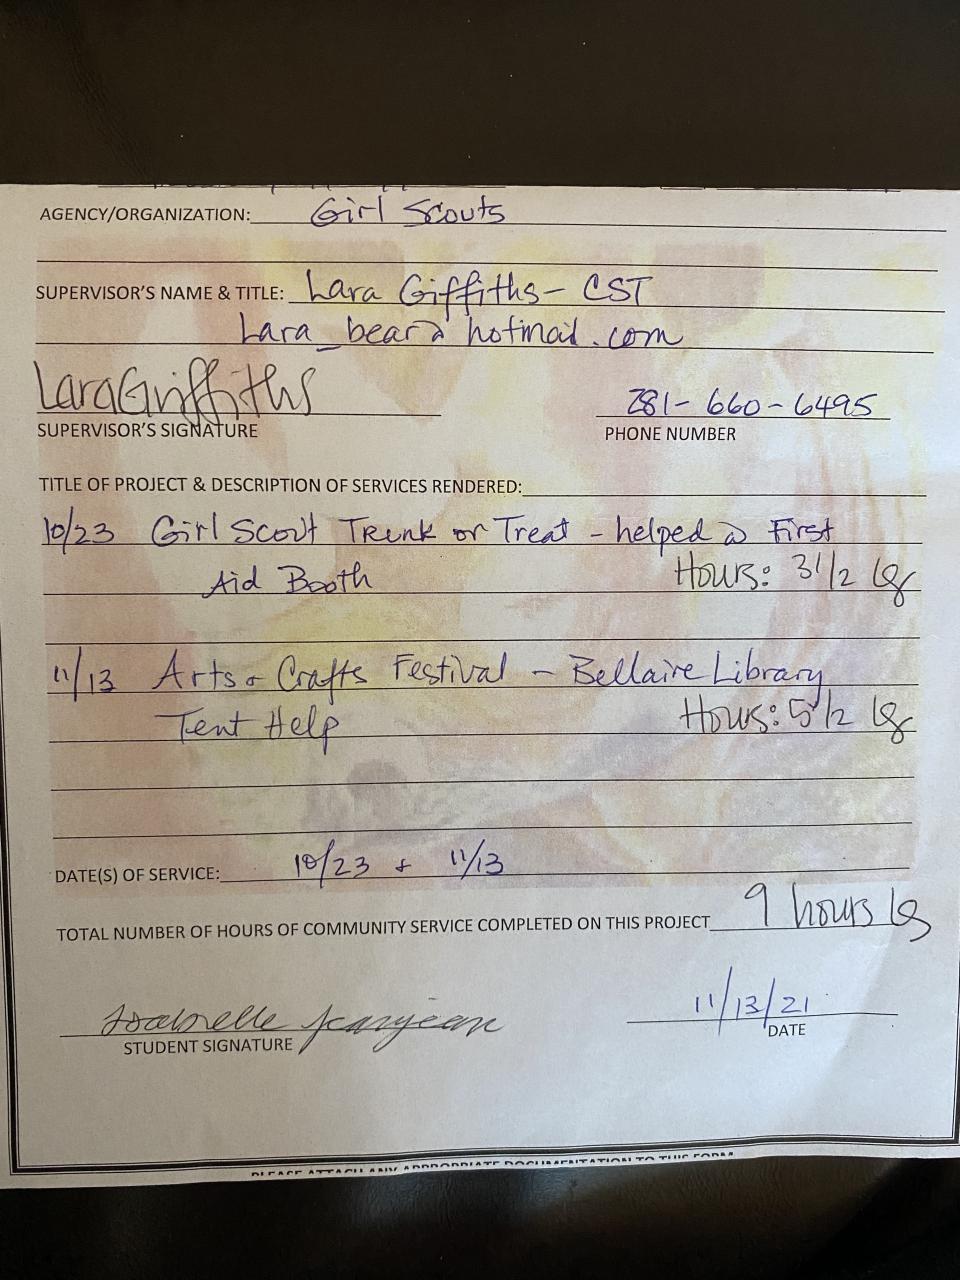 AGENCY/ORGANIZATION: Girl Scouts
SUPERVISOR'S NAME & TITLE: Lara Giffiths - CST
Lara_bear@hotmail.com
LaraGriffiths
281-660-6495
SUPERVISOR'S SIGNATURE PHONE NUMBER
TITLE OF PROJECT & DESCRIPTION OF SERVICES RENDERED:
10/23 Girl Scout Trunk or Treat - helped @ First
Aid Booth Hours: 3 1/2 LG
11/13 Arts & Crafts Festival - Bellaire Library
Tent Help Hours: 5 1/2 LG
DATE(S) OF SERVICE: 10/23 & 11/13
TOTAL NUMBER OF HOURS OF COMMUNITY SERVICE COMPLETED ON THIS PROJECT 9 hours LG
Isabelle 11/13/21
STUDENT SIGNATURE DATE
PLEASE ATTACH ANY APPROPRIATE DOCUMENTATION TO THIS FORM